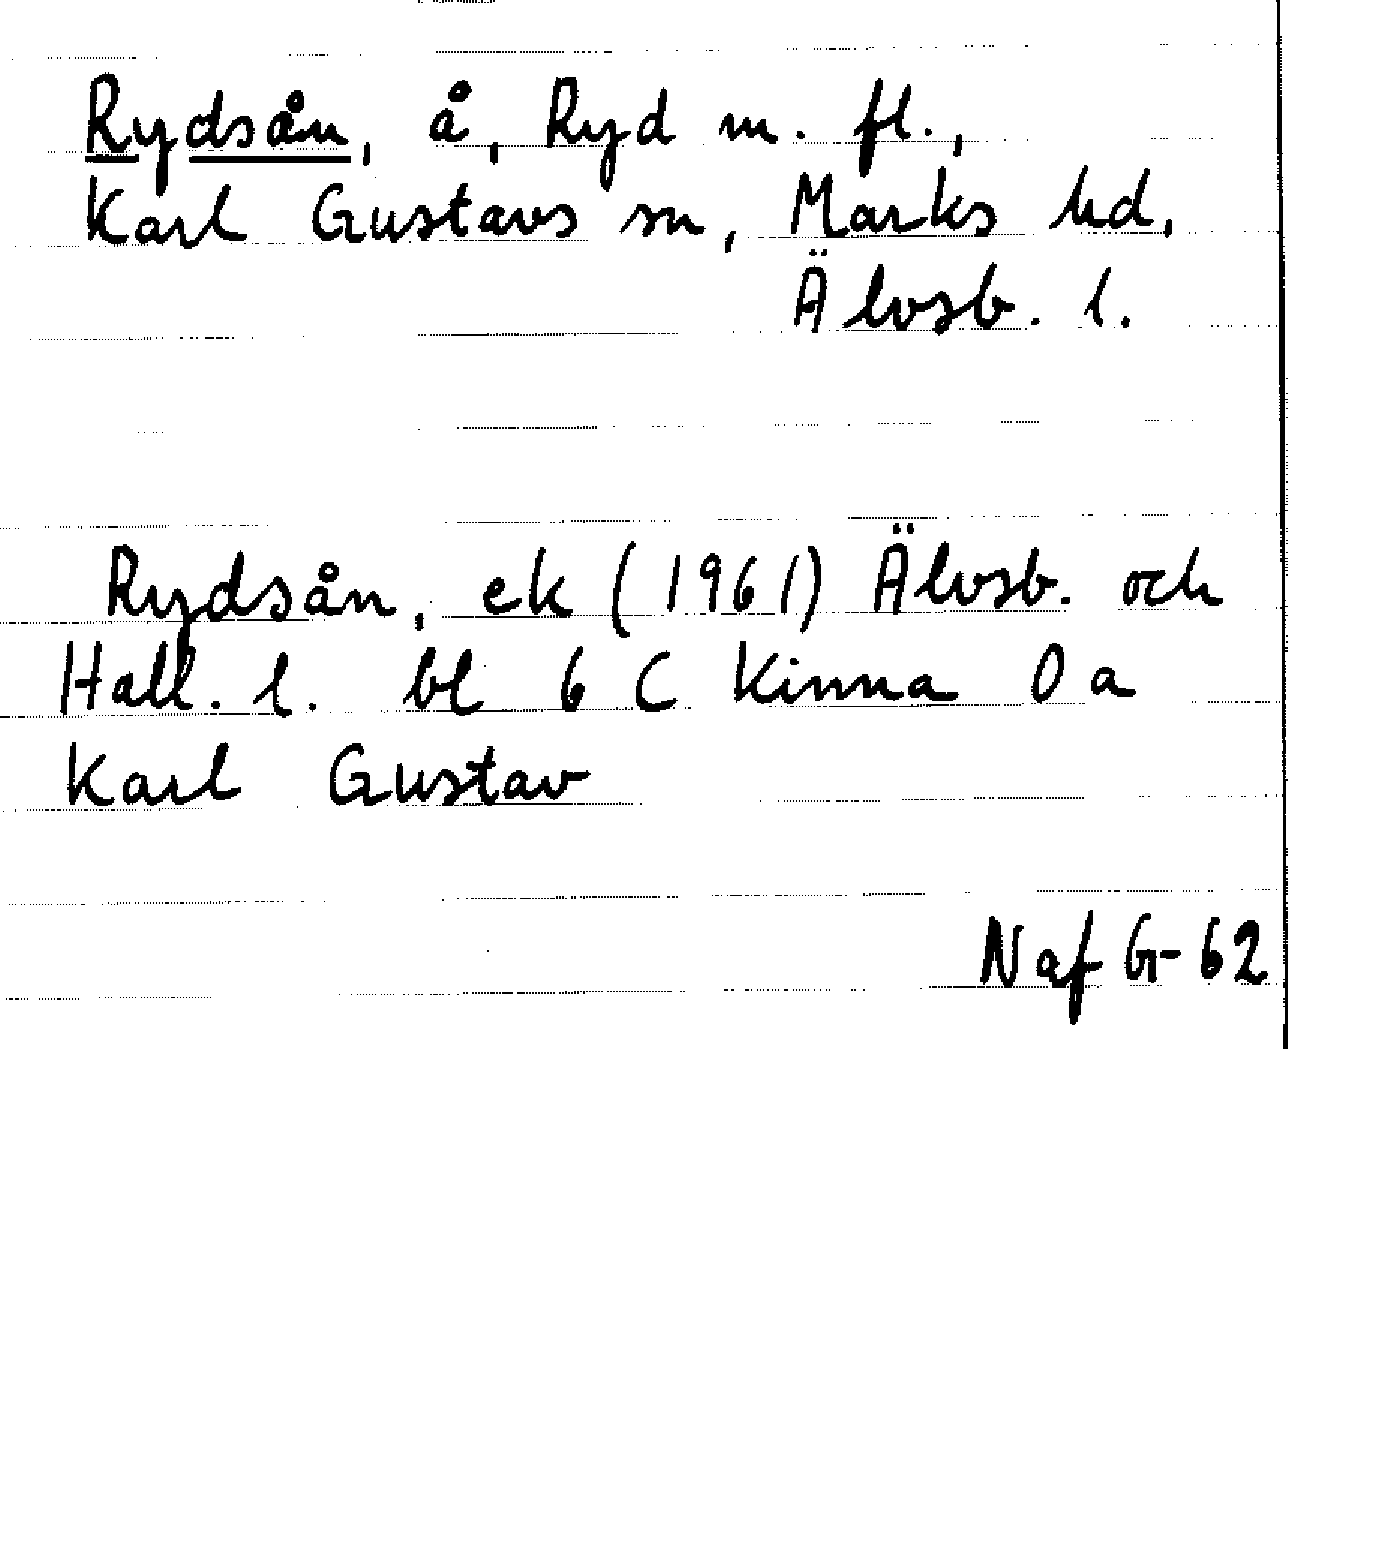 Rydsån, å, Ryd m. fl.,
Karl Gustavs sn, Marks hd,
Älvsb. l.
Rydsån, ek (1961) Älvsb. och
Hall. l. bl 6 C Kinna 0 a
Karl Gustav
Naf G-62